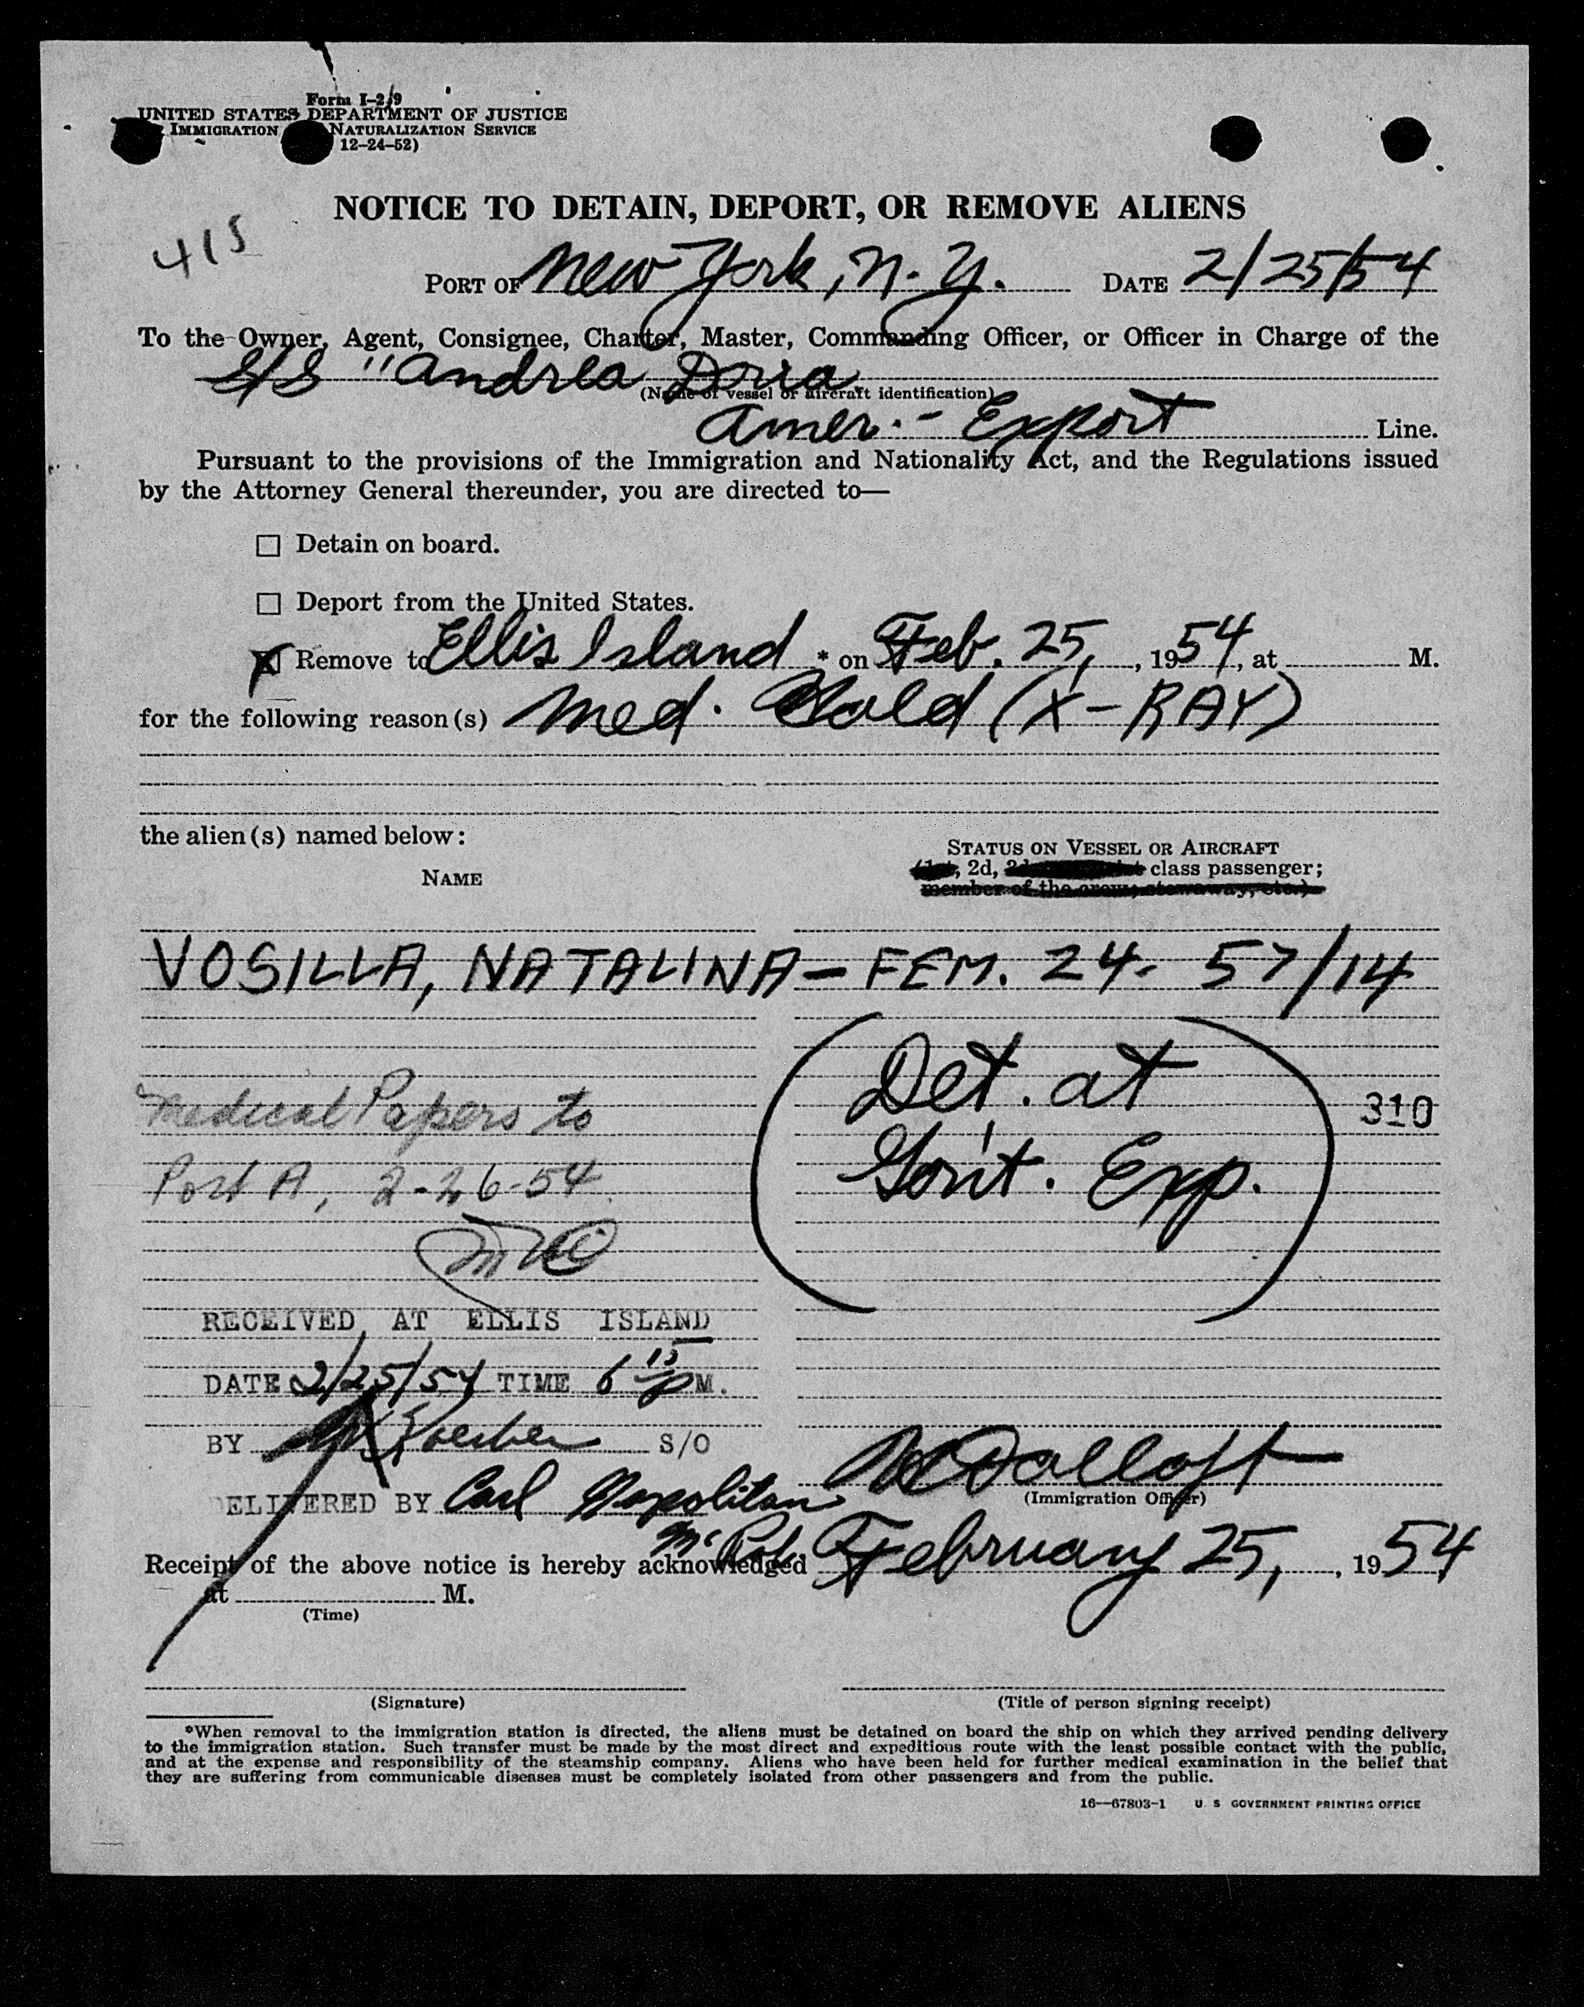 Form I-259
UNITED STATES DEPARTMENT OF JUSTICE
IMMIGRATION NATURALIZATION SERVICE
12-24-52)
NOTICE TO DETAIN, DEPORT, OR REMOVE ALIENS
415
PORT OF New York, N. Y. DATE 2/25/54
To the Owner, Agent, Consignee, Charter, Master, Commanding Officer, or Officer in Charge of the
S/S "Andrea Doria
(Name of vessel or aircraft identification)
Amer. - Export Line.
Pursuant to the provisions of the Immigration and Nationality Act, and the Regulations issued
by the Attorney General thereunder, you are directed to—
☐ Detain on board.
☐ Deport from the United States.
☒ Remove to Ellis Island * on Feb. 25, , 1954, at M.
for the following reason(s) Med. Hold (X-RAY)
the alien(s) named below:
STATUS ON VESSEL OR AIRCRAFT
NAME
, 2d, class passenger;
member of the crew, stowaway, etc.)
VOSILLA, NATALINA - FEM. 24. 57/14
(Det. at
310
Gov't. Exp.)
Medical Papers to
Port A, 2-26-54.
RECEIVED AT ELLIS ISLAND
DATE 2/25/54 TIME 6 15 P M.
BY S/O
(Immigration Officer)
DELIVERED BY Carl Napolitan
Receipt of the above notice is hereby acknowledged February 25, , 1954
at M.
(Time)
(Signature)
(Title of person signing receipt)
*When removal to the immigration station is directed, the aliens must be detained on board the ship on which they arrived pending delivery
to the immigration station. Such transfer must be made by the most direct and expeditious route with the least possible contact with the public,
and at the expense and responsibility of the steamship company. Aliens who have been held for further medical examination in the belief that
they are suffering from communicable diseases must be completely isolated from other passengers and from the public.
16—67803-1 U. S GOVERNMENT PRINTING OFFICE